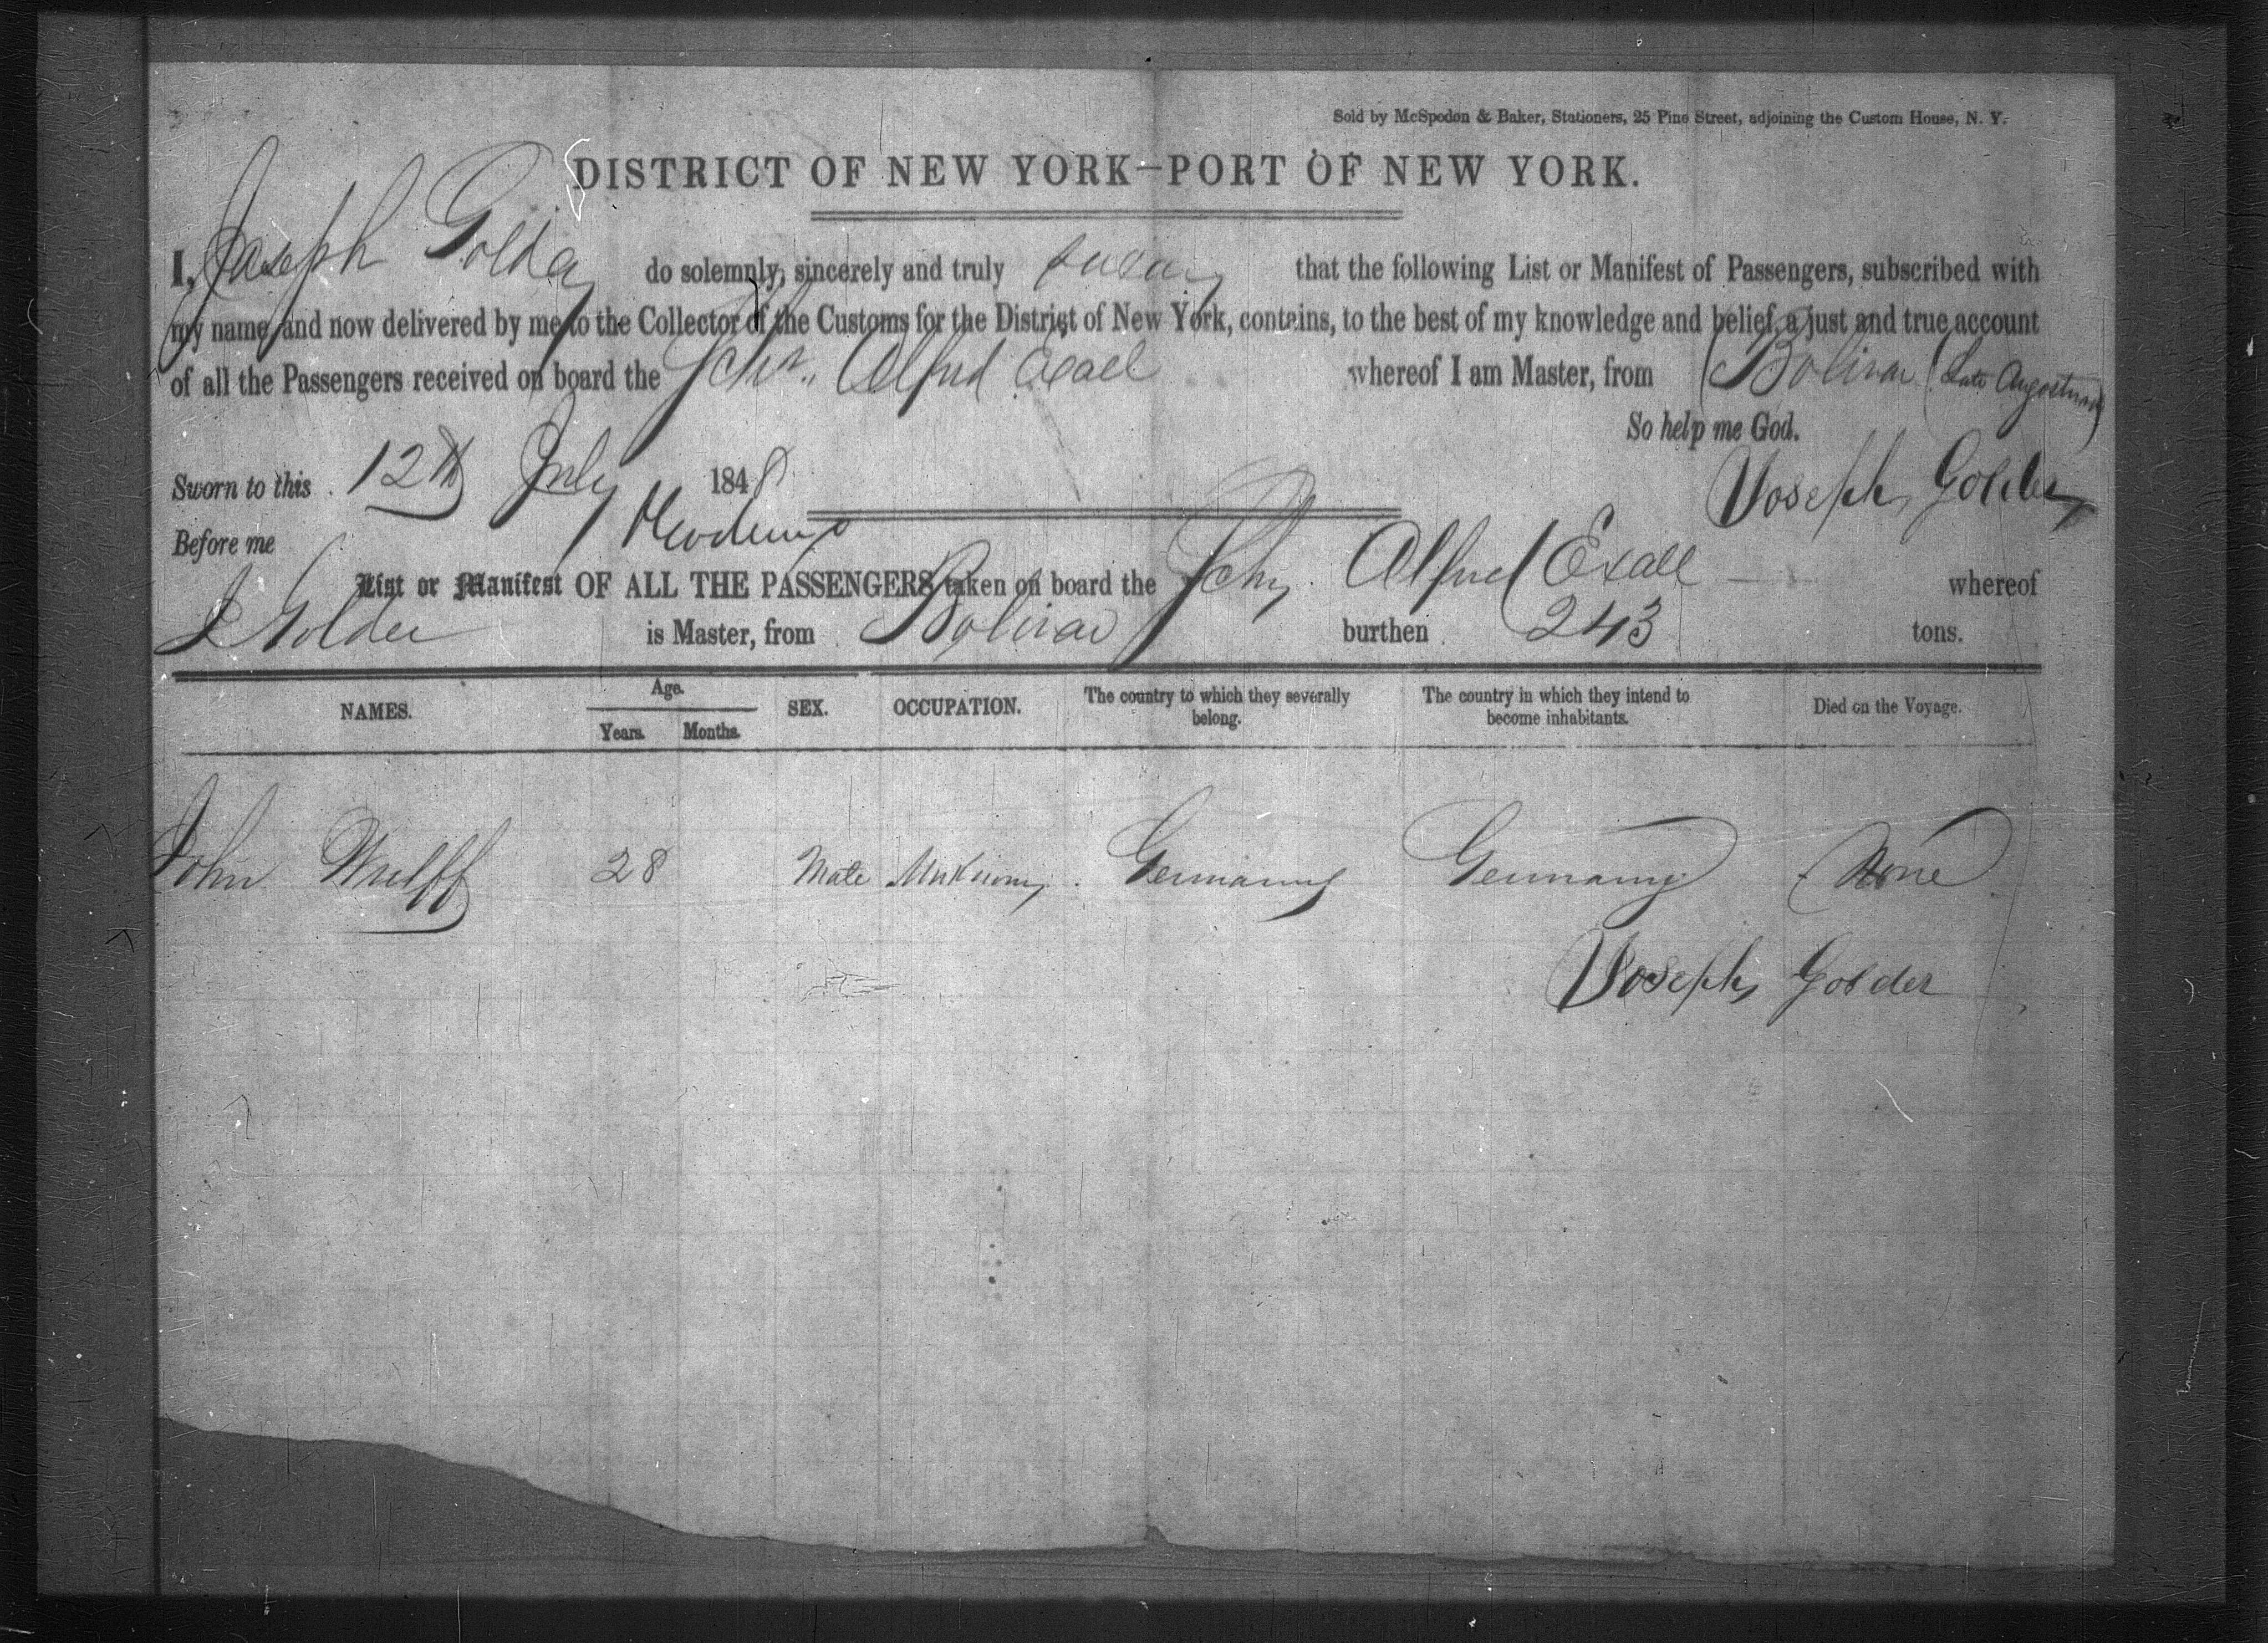 Sold by McSpedon & Baker, Stationers, 25 Pine Street, adjoining the Custom House, N. Y.
DISTRICT OF NEW YORK—PORT OF NEW YORK.
I, Joseph Golder do solemnly, sincerely and truly swear that the following List or Manifest of Passengers, subscribed with
my name, and now delivered by me to the Collector of the Customs for the District of New York, contains, to the best of my knowledge and belief, a just and true account
of all the Passengers received on board the Schr. Alfred Exall whereof I am Master, from Bolivar (Late Angostura)
So help me God.
Sworn to this 12th July 1848 Joseph Golder
Before me
List or Manifest OF ALL THE PASSENGERS taken on board the Schr Alfred Exall whereof
J Golder is Master, from Bolivar burthen 243 tons.
NAMES. Age. Years. Months. SEX. OCCUPATION. The country to which they severally belong. The country in which they intend to become inhabitants. Died on the Voyage.
John Wulff 28 Male Unknown Germany Germany None
Joseph Golder